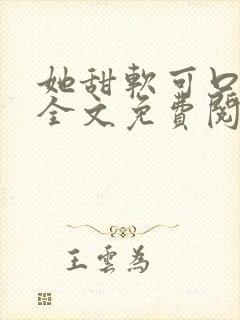 她甜軟可口
全文免費閱
王雲為